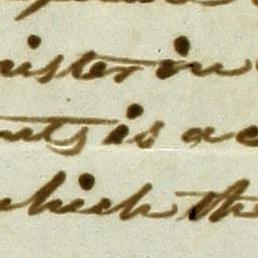 nister in
nts is a c
which the